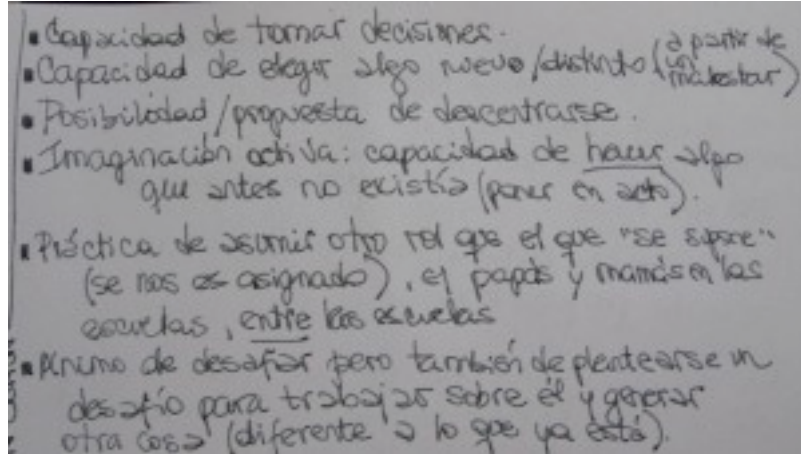 ▪ Capacidad de tomar decisiones.
▪ Capacidad de elegir algo nuevo/distinto (a partir de un malestar)
▪ Posibilidad/propuesta de descentrarse.
▪ Imaginación activa: capacidad de hacer algo
que antes no existía (poner en acto).
▪ Práctica de asumir otro rol que el que "se supone"
(se nos es asignado), ej papás y mamás en las
escuelas, entre las escuelas
▪ Ánimo de desafiar pero también de plantearse un
desafío para trabajar sobre él y generar
otra cosa (diferente a lo que ya está).